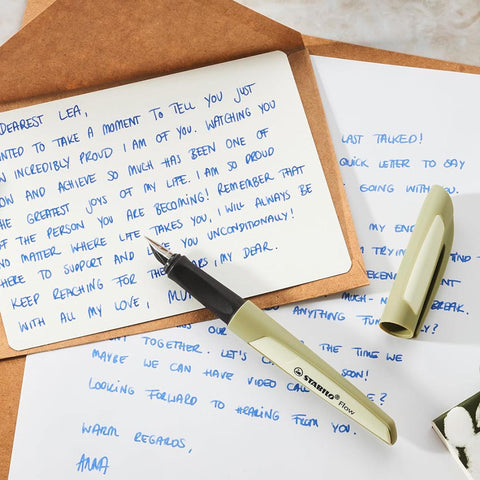 DEAREST LEA,
NTED TO TAKE A MOMENT TO TELL YOU JUST
W INCREDIBLY PROUD I AM OF YOU. WATCHING YOU
OW AND ACHIEVE SO MUCH HAS BEEN ONE OF
HE GREATEST JOYS OF MY LIFE. I AM SO PROUD
F THE PERSON YOU ARE BECOMING! REMEMBER THAT
NO MATTER WHERE LIFE TAKES YOU, I WILL ALWAYS BE
HERE TO SUPPORT AND YOU UNCONDITIONALLY!
KEEP REACHING FOR THE MY DEAR.
WITH ALL MY LOVE,
LAST TALKED!
QUICK LETTER TO SAY
GOING WITH YOU.
MY END
TRYIN ND -
EKEN
MUCH- BREAK.
ANYTHING FUN ?
OUR
NT TOGETHER. LET'S THE TIME WE
MAYBE WE CAN HAVE VIDEO CAL SOON!
LOOKING FORWARD TO HEARING FROM YOU.
WARM REGARDS,
ANNA
STABILO® Flow